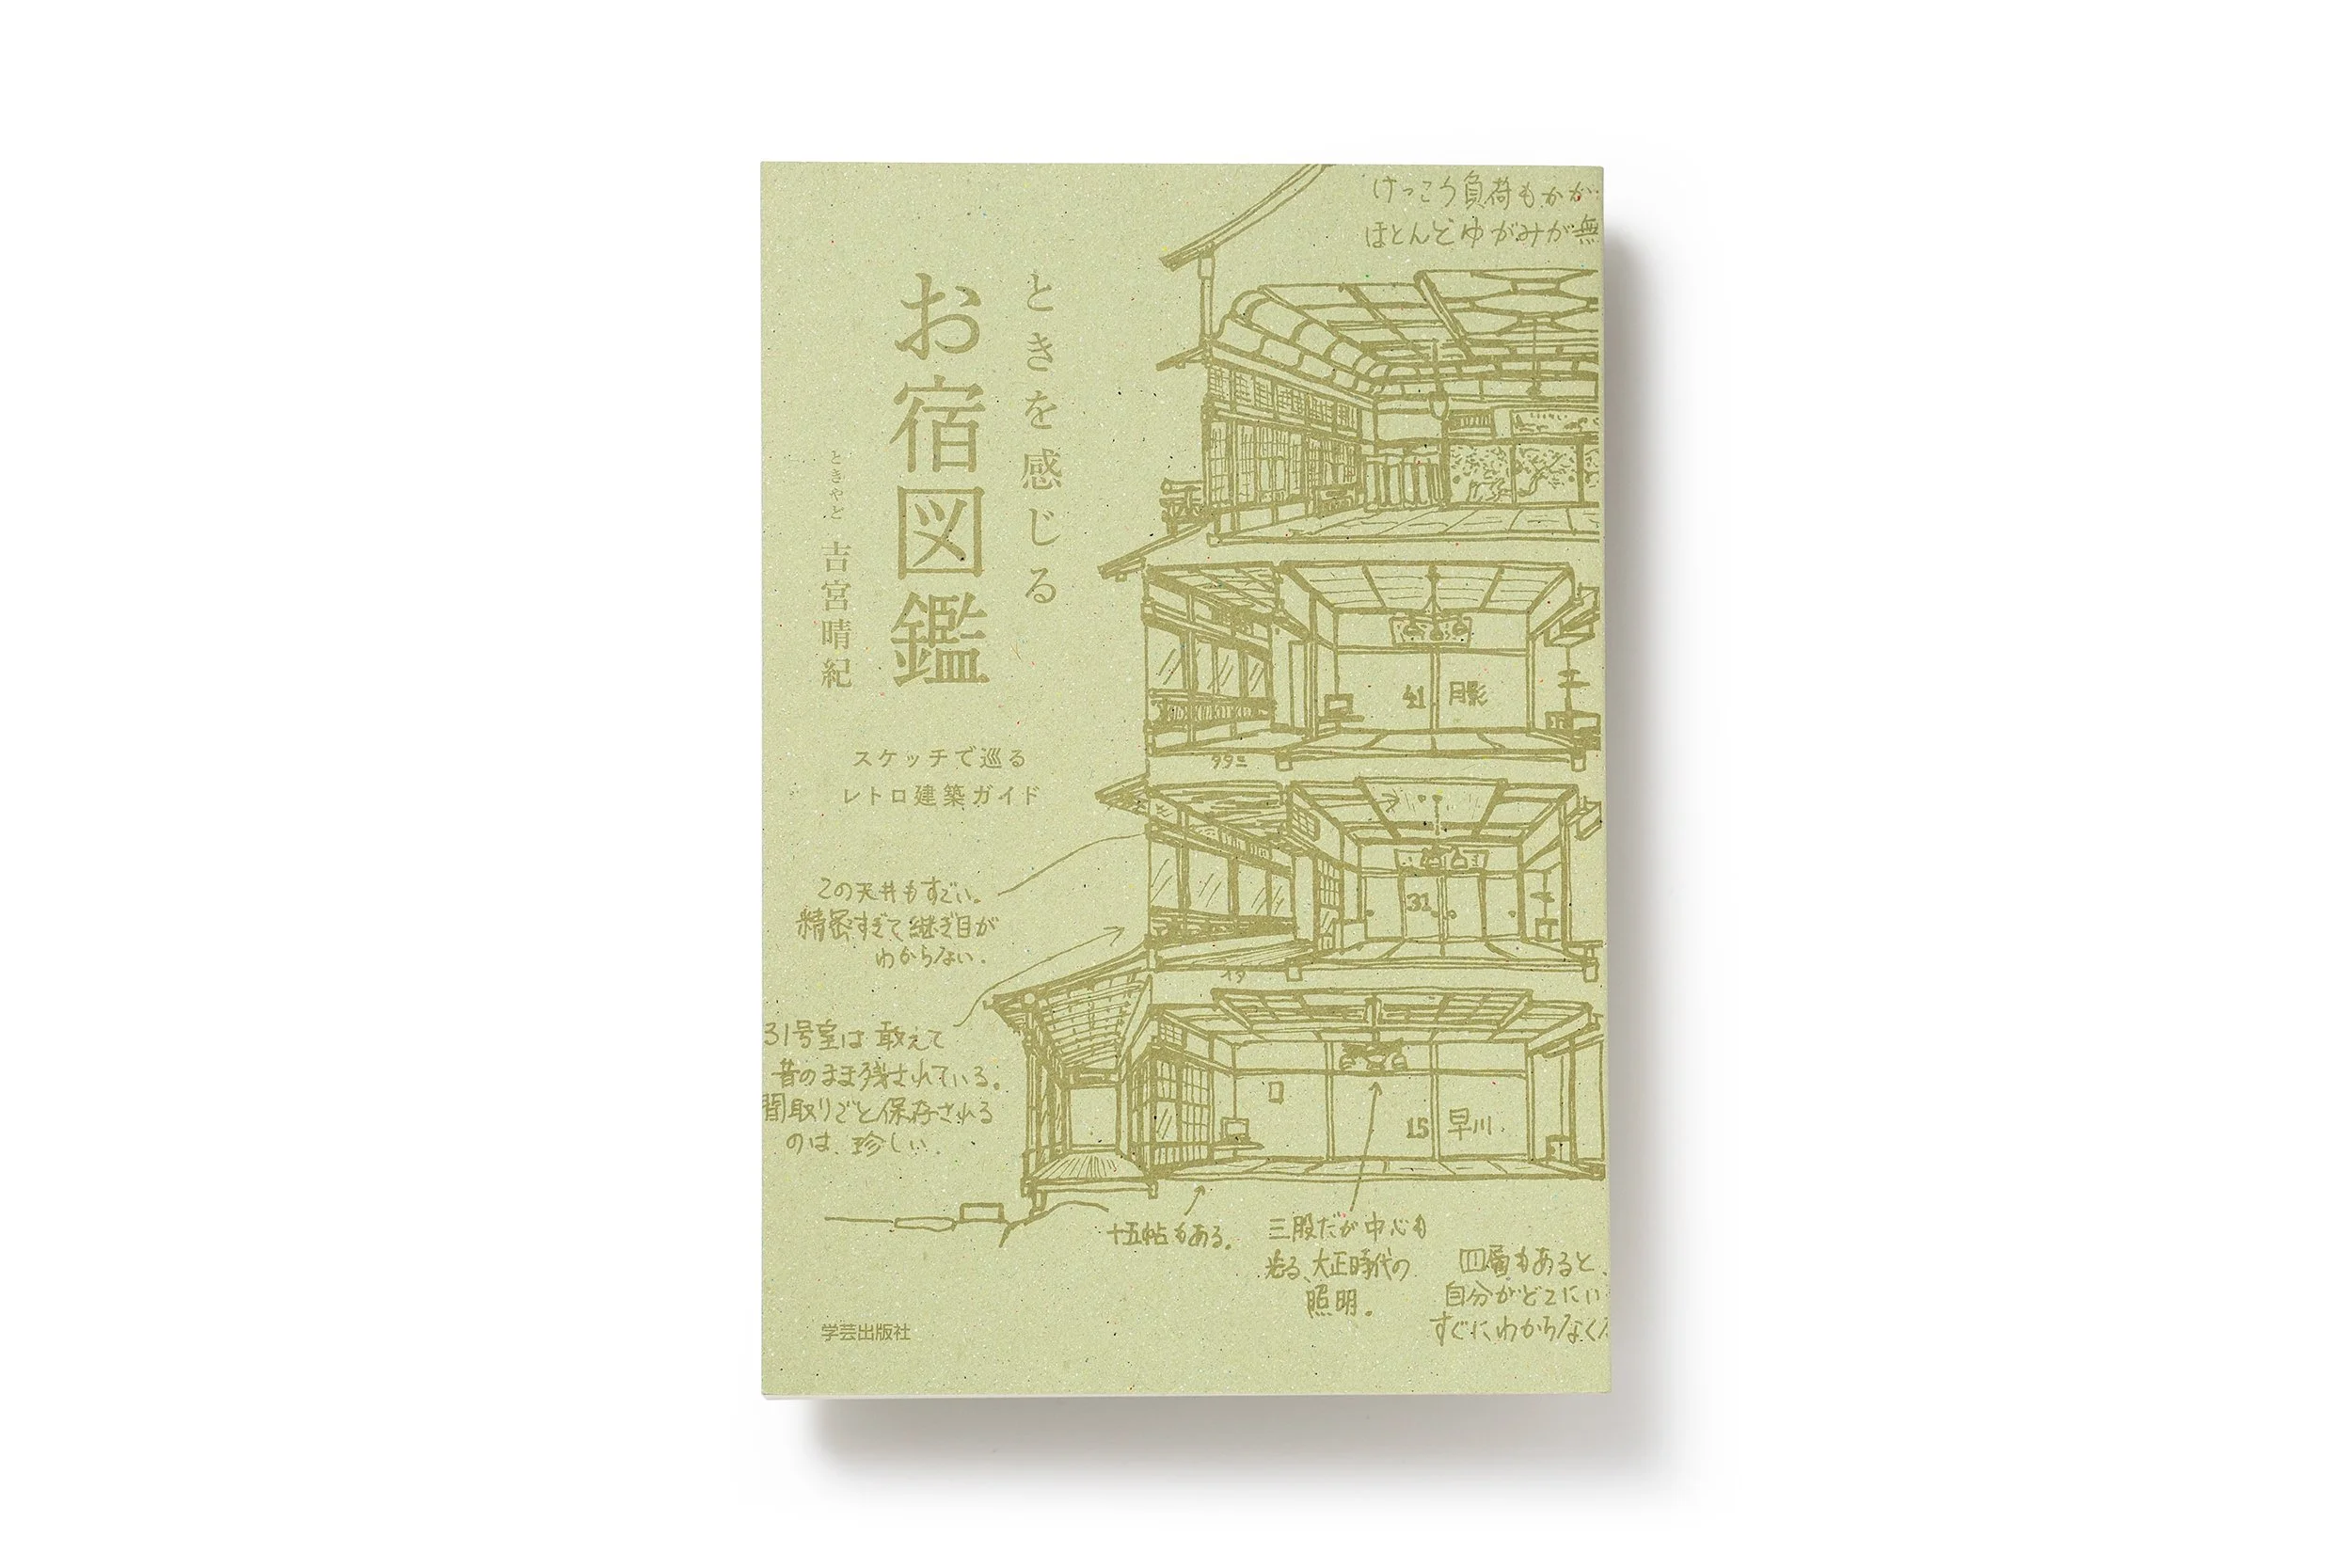 けっこう負荷もかか
ほとんどゆがみが無
ときを感じる
お宿図鑑
ときやど 吉宮晴紀
スケッチで巡る
レトロ建築ガイド
41 月影
31
15 早川
この天井もすごい。
精密すぎて継ぎ目が
わからない。
31号室は敢えて
昔のまま残されている。
間取りごと保存される
のは、珍しい。
十五帖もある。
三股だが中心も
光る、大正時代の
照明。
四層もあると、
自分がどこにい
すぐにわからなく
学芸出版社